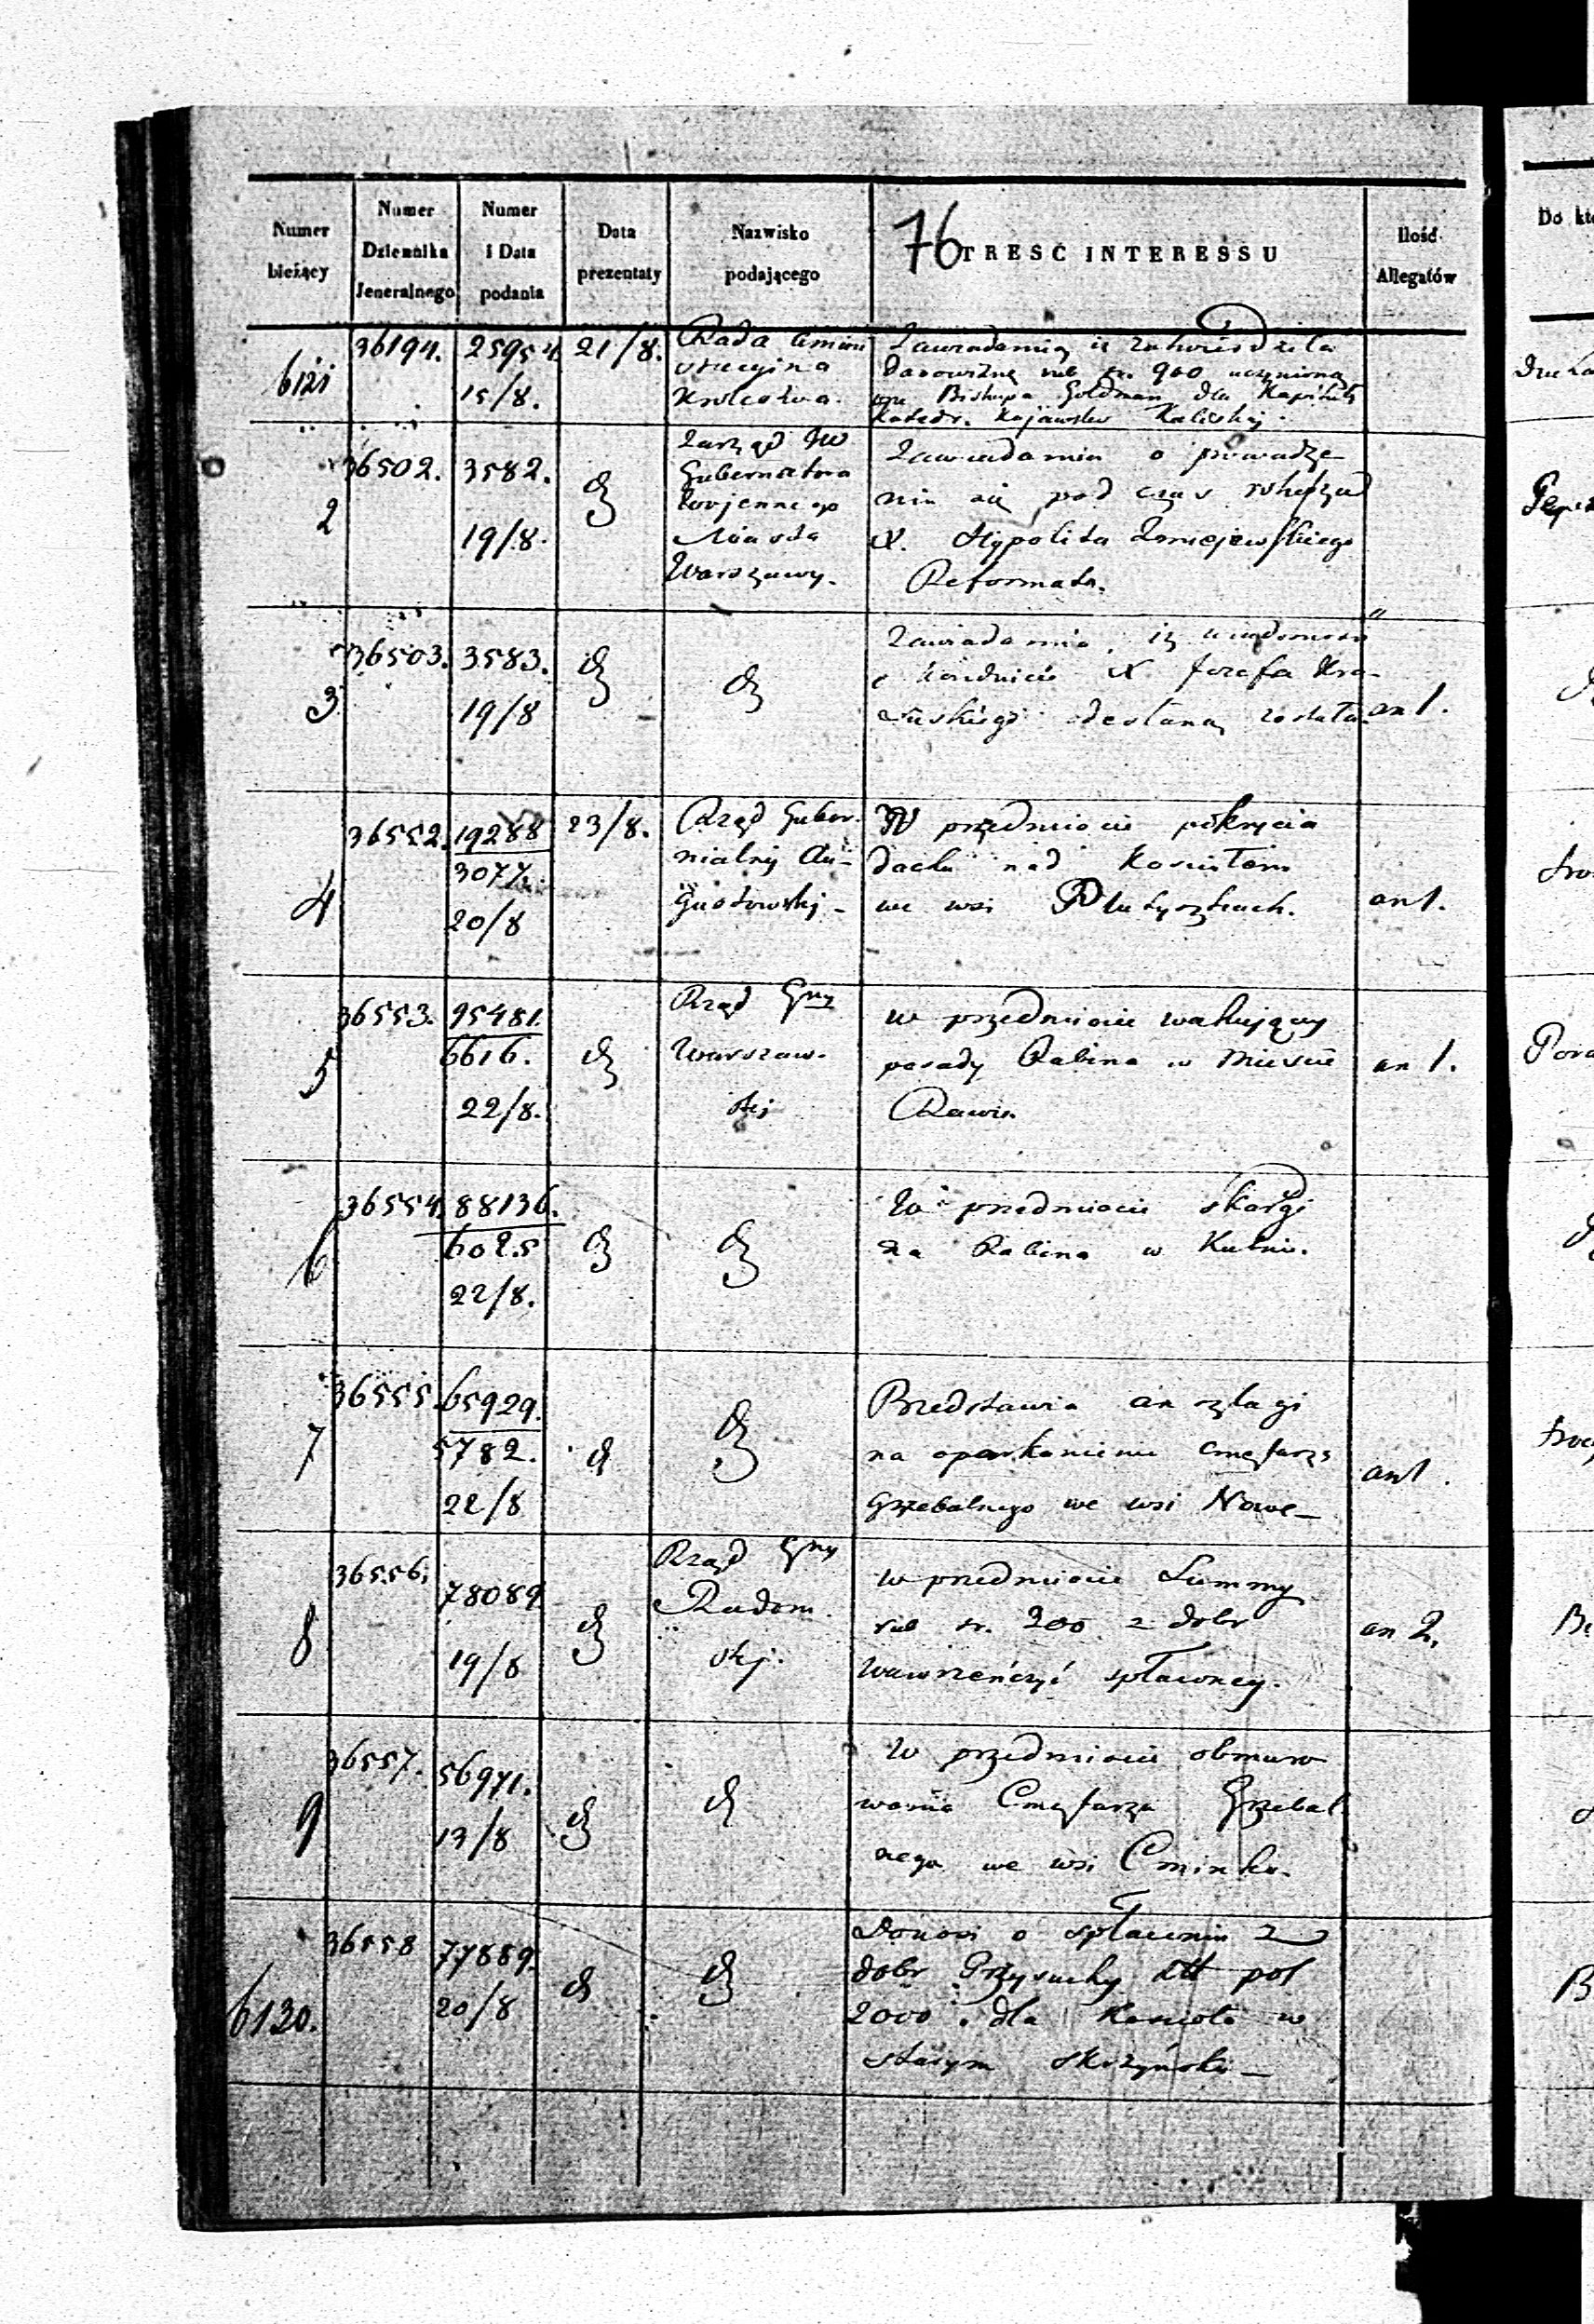 76
Numer bieżący
Numer Dziennika Jeneralnego
Numer i Data podania
Data prezentaty
Nazwisko podającego
TREŚĆ INTERESSU
Ilość Allegatów
Do
6121
36194.
25954.
15/8.
21/8.
Rada Admini
stracyjna
Królestwa.
Zawiadamia iż zatwierdziła
darowiznę rub sr. 900 uczynioną
Biskupa Goldman dla Kapituły
Katedr. Kujawsko Kaliskiej.
2
36502.
3582.
19/8.
Zarząd
Gubernatora
Wojennego
Miasta
Warszawy.
Zawiadamia o prowadze
niu się pod czas
X. Hypolita
Reformata.
3
36503.
3583.
19/8
Zawiadamia, iż wiadomość
o X Jozefa Kra-
odesłaną została
an 1.
4
36552.
19288
3077.
20/8
23/8.
Rząd Guber.
nialny Au-
gustowski-
W przedmiocie pokrycia
dachu nad Kosciołem
we wsi Plutyszkach.
an 1.
5
36553.
95481.
6616.
22/8.
Rząd Gny
Warszaw-
ski
w przedmiocie wakującey
posady Rabina w Miescie
Rawie.
an 1.
6
36554.
88136.
6025
22/8.
W przedmiocie skargi
na Rabina w Kutnie.
7
36555.
65929.
5782.
22/8
Przedstawia anszlagi
na oparkanienie cmętarza
Grzebalnego we wsi Nowe-
an 1.
8
36556.
78089
19/8
Rząd Gny
Radom
ski.
w przedmiocie Summy
rub sr. 300 z dobr
Wawrzeńczyc spławney.
an 2.
9
36557.
56971.
13/8
W przedmiocie obmuro
wania Cmętarza Grzebal
nego we wsi Cminko.
6130.
36558
77889.
20/8
Donosi o spławieniu z
dobr Przysuchy złt pol
2000 dla Kościoła w
starym Skrzyńsku-